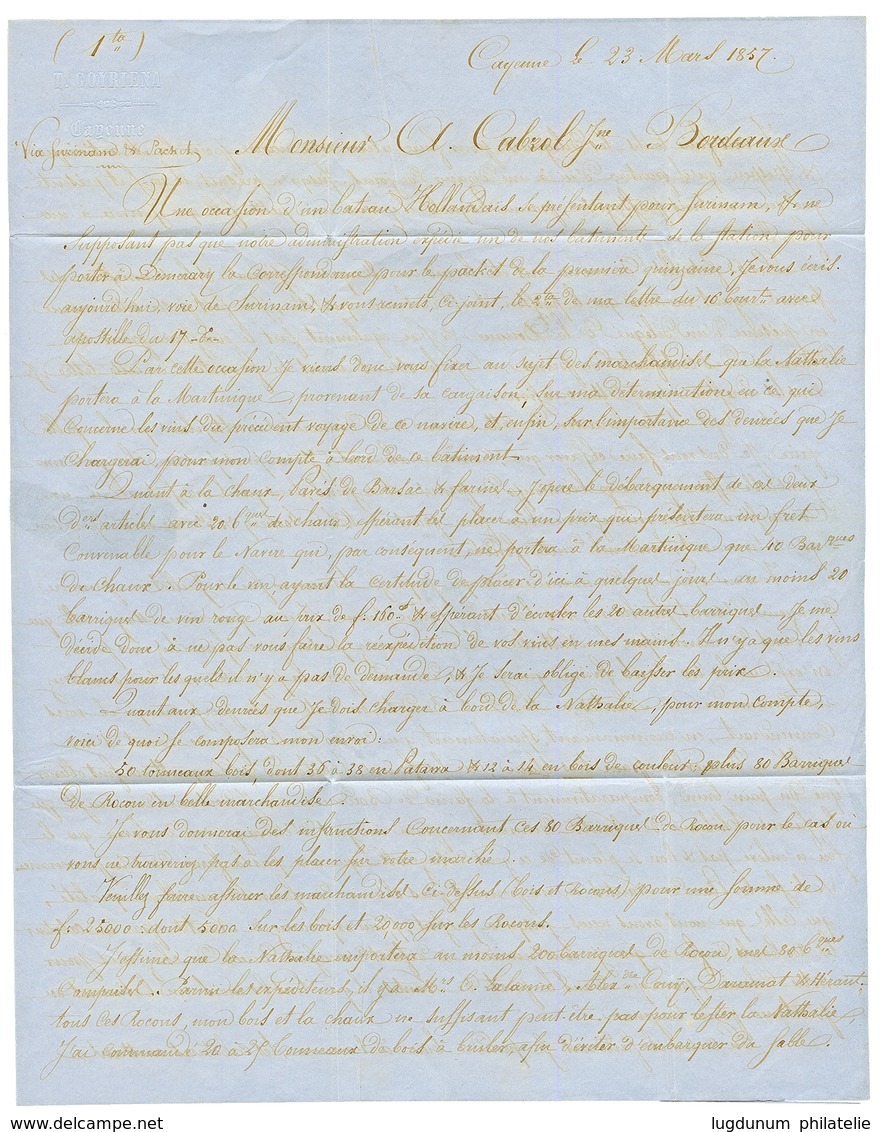 ( 1ta )
T. GOYRIENA
Cayenne
Cayenne le 23 Mars 1857.
Via Surinam & Packet
Monsieur A. Cabrol Jne Bordeaux
Une occasion d'un bateau Hollandais se présentant pour Surinam, & ne
supposant pas que notre administration expédie un de nos bâtiments de la station pour
porter à Demerary la correspondance pour le packet de la première quinzaine, Je vous écris
aujourd'hui, voie de Surinam, & vous remets, ci-joint, le 2ta de ma lettre du 16 Court. avec
apostille du 17 do.
Par cette occasion Je viens donc vous fixer au sujet des marchandises que la Nathalie
portera à la Martinique, provenant de sa cargaison, sur ma détermination en ce qui
concerne les vins du précédent voyage de ce navire, et, enfin, sur l'importance des denrées que Je
chargerai, pour mon compte à bord de ce bâtiment.
Quant à la chaux, Pavés de Barsac & farines, J'opère le débarquement de ces deux
ders articles avec 20 bques de chaux espérant les placer à un prix qui présentera un fret
convenable pour le Navire qui, par conséquent, ne portera à la Martinique que 40 Barriques
de chaux. Pour le vin, ayant la certitude de placer d'ici à quelques jours au moins 20
barriques de vin rouge au prix de f. 160 & espérant d'écouler les 20 autres barriques, Je me
décide donc à ne pas vous faire la réexpédition de vos vins en mes mains. Il n'y a que les vins
blancs pour lesquels il n'y a pas de demande, & Je serai obligé de baisser les prix.
Quant aux denrées que Je dois charger à bord de la Nathalie, pour mon compte,
voici de quoi se composera mon envoi:
50 tonneaux bois, dont 36 à 38 en Patawa & 12 à 14 en bois de couleur; plus 80 Barriques
de Rocou en belle marchandise.
Je vous donnerai des instructions concernant ces 80 Barriques de Rocou pour le cas où
vous ne trouveriez pas à les placer sur votre marché.
Veuillez faire assurer les marchandises ci-dessus (bois et Rocous) pour une somme de
f. 25000. dont 5000 sur les bois et 20,000 sur les Rocous.
J'estime que la Nathalie emportera au moins 200 barriques de Rocou, mes 80 bques
comprises. Parmi les expéditeurs, il y a Mrs C. Lalanne, Alexdre Couy, & Hérant.
tous ces Rocous, mon bois et la chaux ne suffisant peut-être pas pour lester la Nathalie,
J'ai commandé 20 à 25 Tonneaux de bois à brûler, afin d'éviter d'embarquer du sable.
lugdunum philatelie